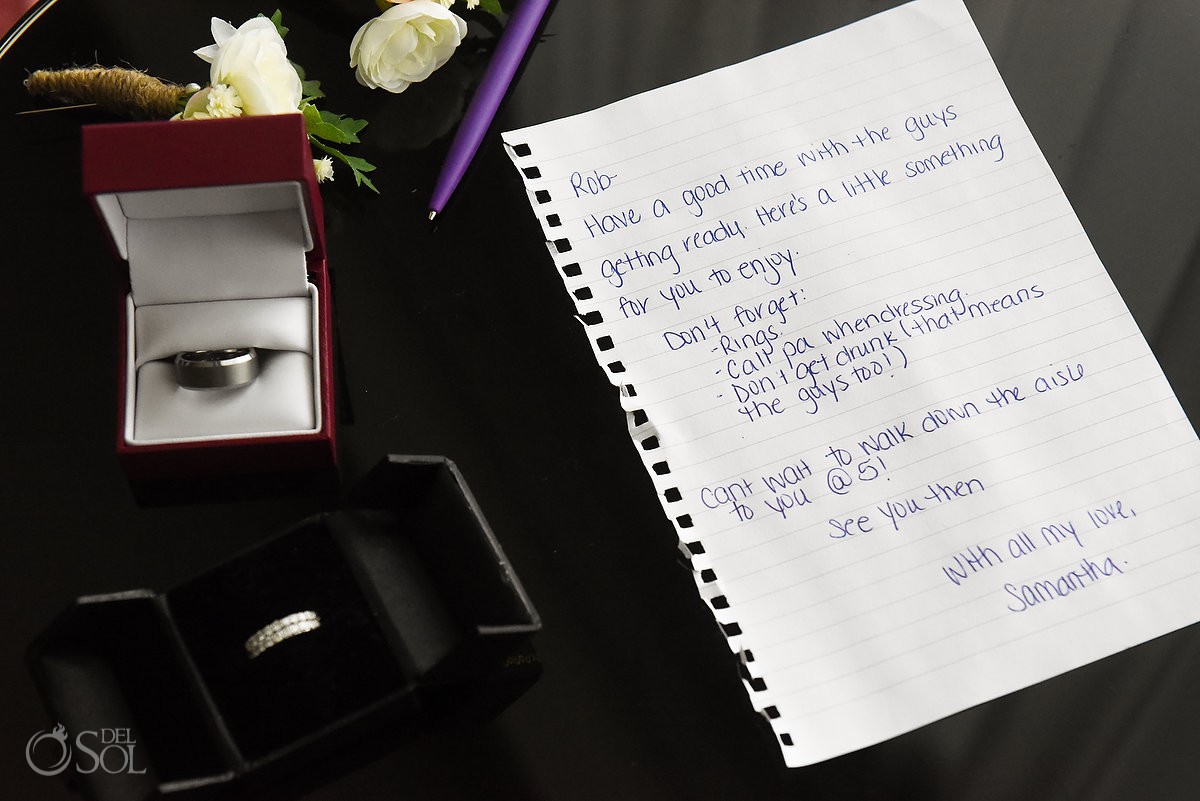 Rob-
Have a good time with the guys
getting ready. Here's a little something
for you to enjoy.
Don't forget:
-Rings.
-Call pa when dressing.
-Don't get drunk (that means
the guys too!)
Can't wait to walk down the aisle
to you @ 5!
See you then
With all my love,
Samantha.
DEL
SOL